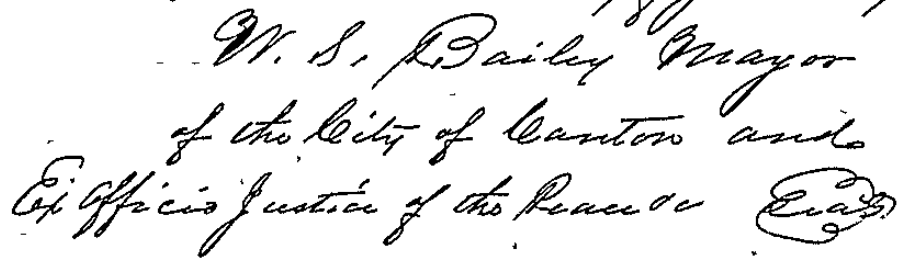 W. S. Bailey Mayor
of the City of Canton and
Ex Officio Justice of the Peace